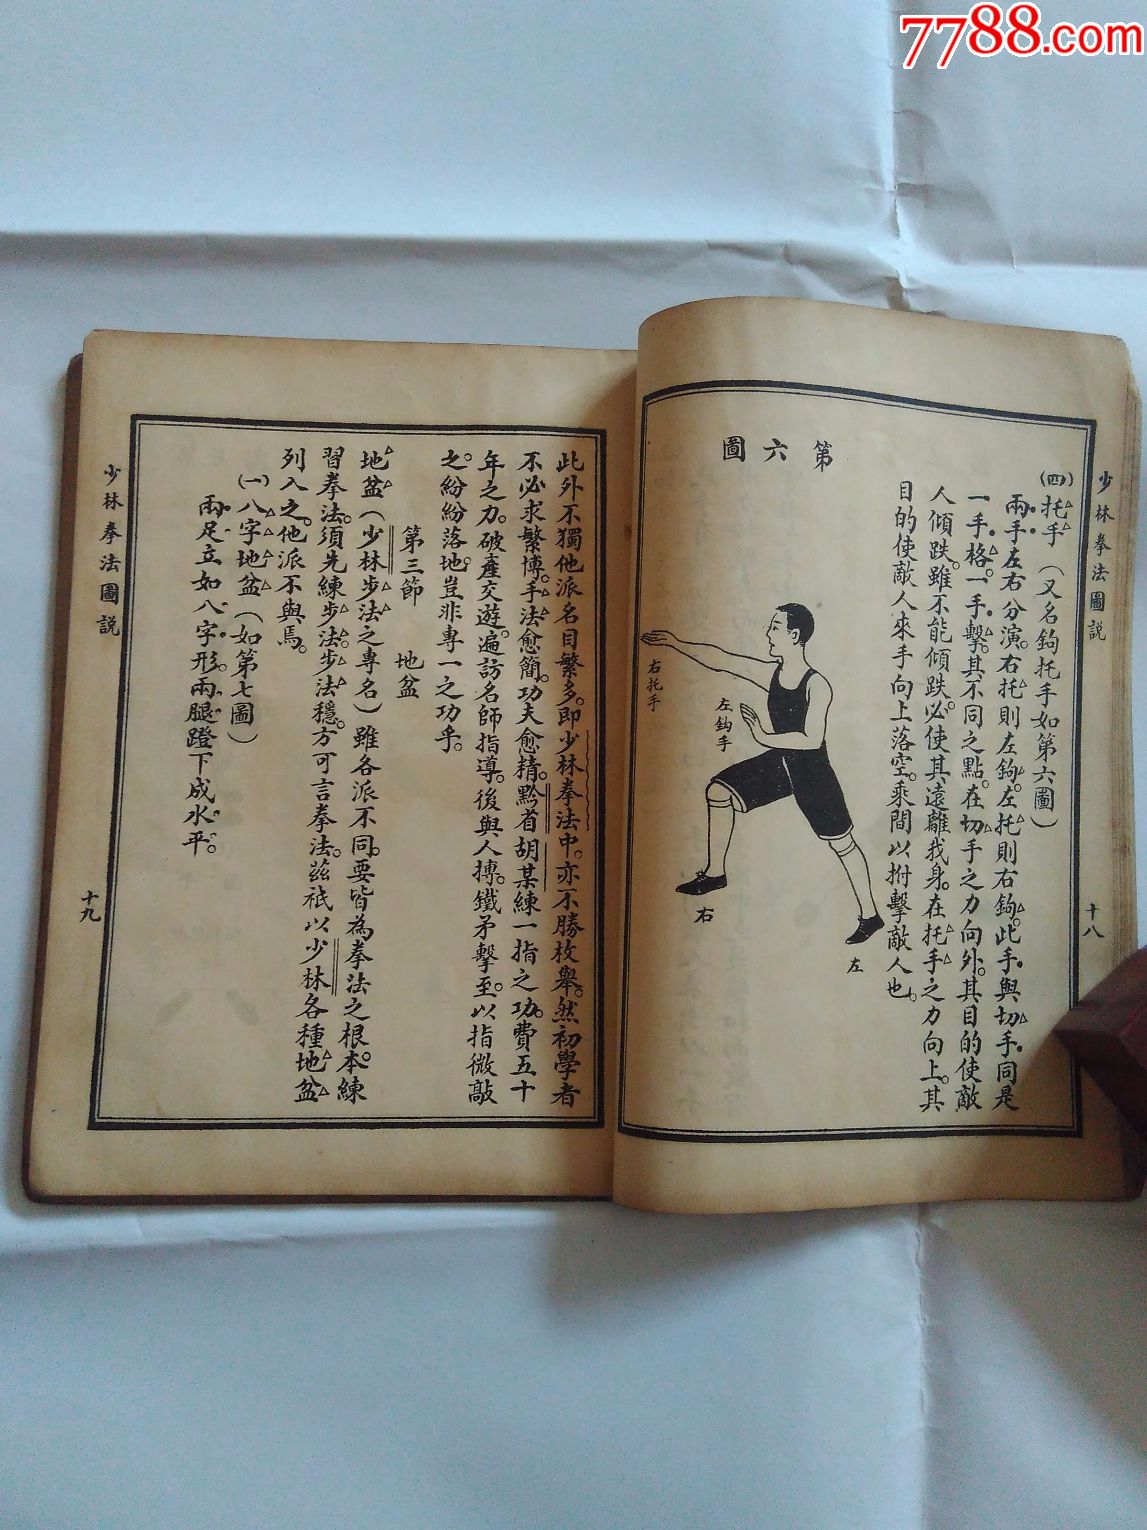 7788.com
少林拳法圖説
十八
(四)托手（又名鈎托手如第六圖）
兩手左右分演。右托則左鈎。左托則右鈎。此手與切手同是
一手格。一手擊。其不同之點。在切手之力向外。其目的使敵
人傾跌。雖不能傾跌。必使其遠離我身。在托手之力向上。其
目的使敵人來手向上落空。乘間以拊擊敵人也。
第六圖
右托手
左鈎手
右
左
此外不獨他派名目繁多。即少林拳法中。亦不勝枚舉。然初學者
不必求繁博。手法愈簡。功夫愈精。黔首胡某練一指之功。費五十
年之力。破產交遊。遍訪名師指導。後與人搏。鐵矛擊至。以指微敲
之。紛紛落地。豈非專一之功乎。
第三節　地盆
地盆（少林步法之專名）雖各派不同。要皆為拳法之根本。練
習拳法。須先練步法。步法穩。方可言拳法。茲祇以少林各種地盆
列入之。他派不與焉。
(一)八字地盆（如第七圖）
兩足立如八字形。兩腿蹬下成水平。
少林拳法圖説
十九